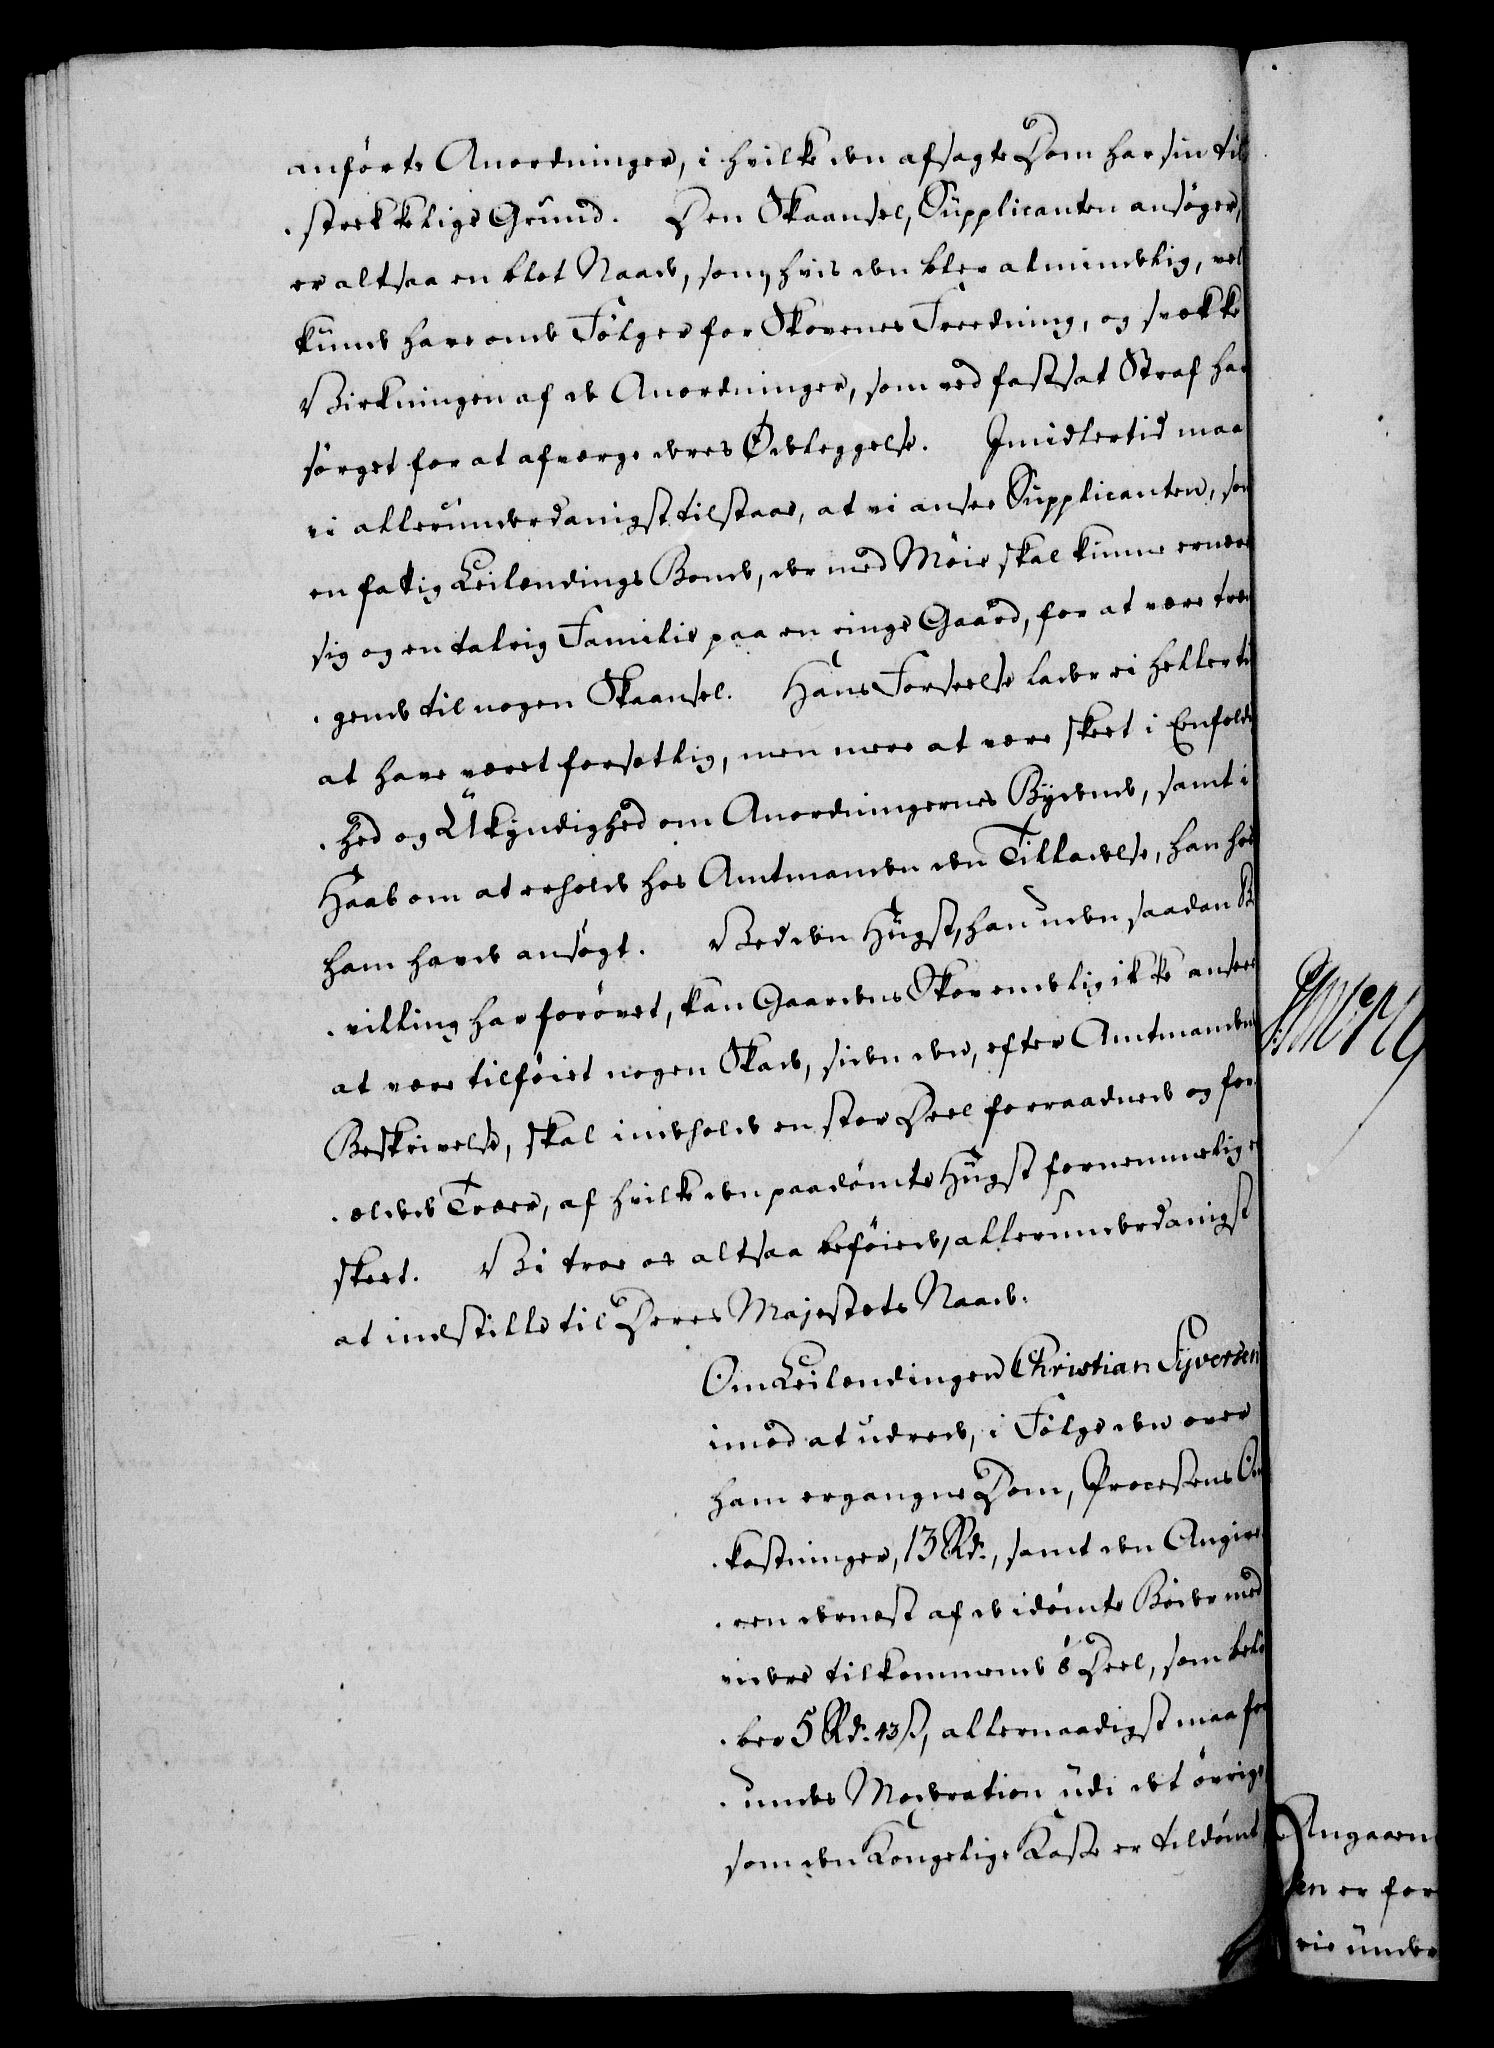 anförte Anordninger, i hvilke den afsagte Dom har sin til
strekkelige Grund. Den Skaansel, Supplicanten ansöger,
er altsaa en blot Naade, som, hvis den blev almindelig, vel
kunde have onde Fölger for Skovenes Freedning, og svække
Virkningen af de Anordninger, som ved fastsat Straf har
sörget for at afverge deres Ödeleggelse. Imidlertid maa
vi allerunderdanigst tilstaae, at vi ansee Supplicanten, som
en fatig Leilendings Bonde, der med Möie skal kunne ernære
sig og en talrig Familie paa en ringe Gaard, for at være træn
gende til nogen Skaansel. Hans Forseelse lader ei heller til
at have været forsetlig, men mere at være skeet i Eenfoldig
hed og Ukyndighed om Anordningernes Bydende, samt i
Haab om at erholde hos Amtmanden den Tilladelse, han hos
ham havde ansögt. Ved den Hugst, han uden saadan Be
villing har forövet, kan Gaardens Skov endelig ikke ansees
at være tilföiet nogen Skade, siden den, efter Amtmandens
Beskrivelse, skal indeholde en stor Deel forraadnede og for
eldede Træer, af hvilke den paadömte Hugst fornemmelig er
skeet. Vi troe os altsaa beföiede, allerunderdanigst
at indstille til Deres Majestets Naade.
Om Leilendingen Christian Syversen
imod at udrede, i Fölge den over
ham ergangne Dom, Processens Om
kostninger, 13 Rd., samt den Angive
ren dernest af de idömte Böder med
videre tilkommende ⅓ Deel, som belö
ber 5 Rd. 43 s, allernaadigst maa for
undes Moderation udi det övrige,
som den Kongelige Kasse er tildömt,
Angaaen
en er for
rie under